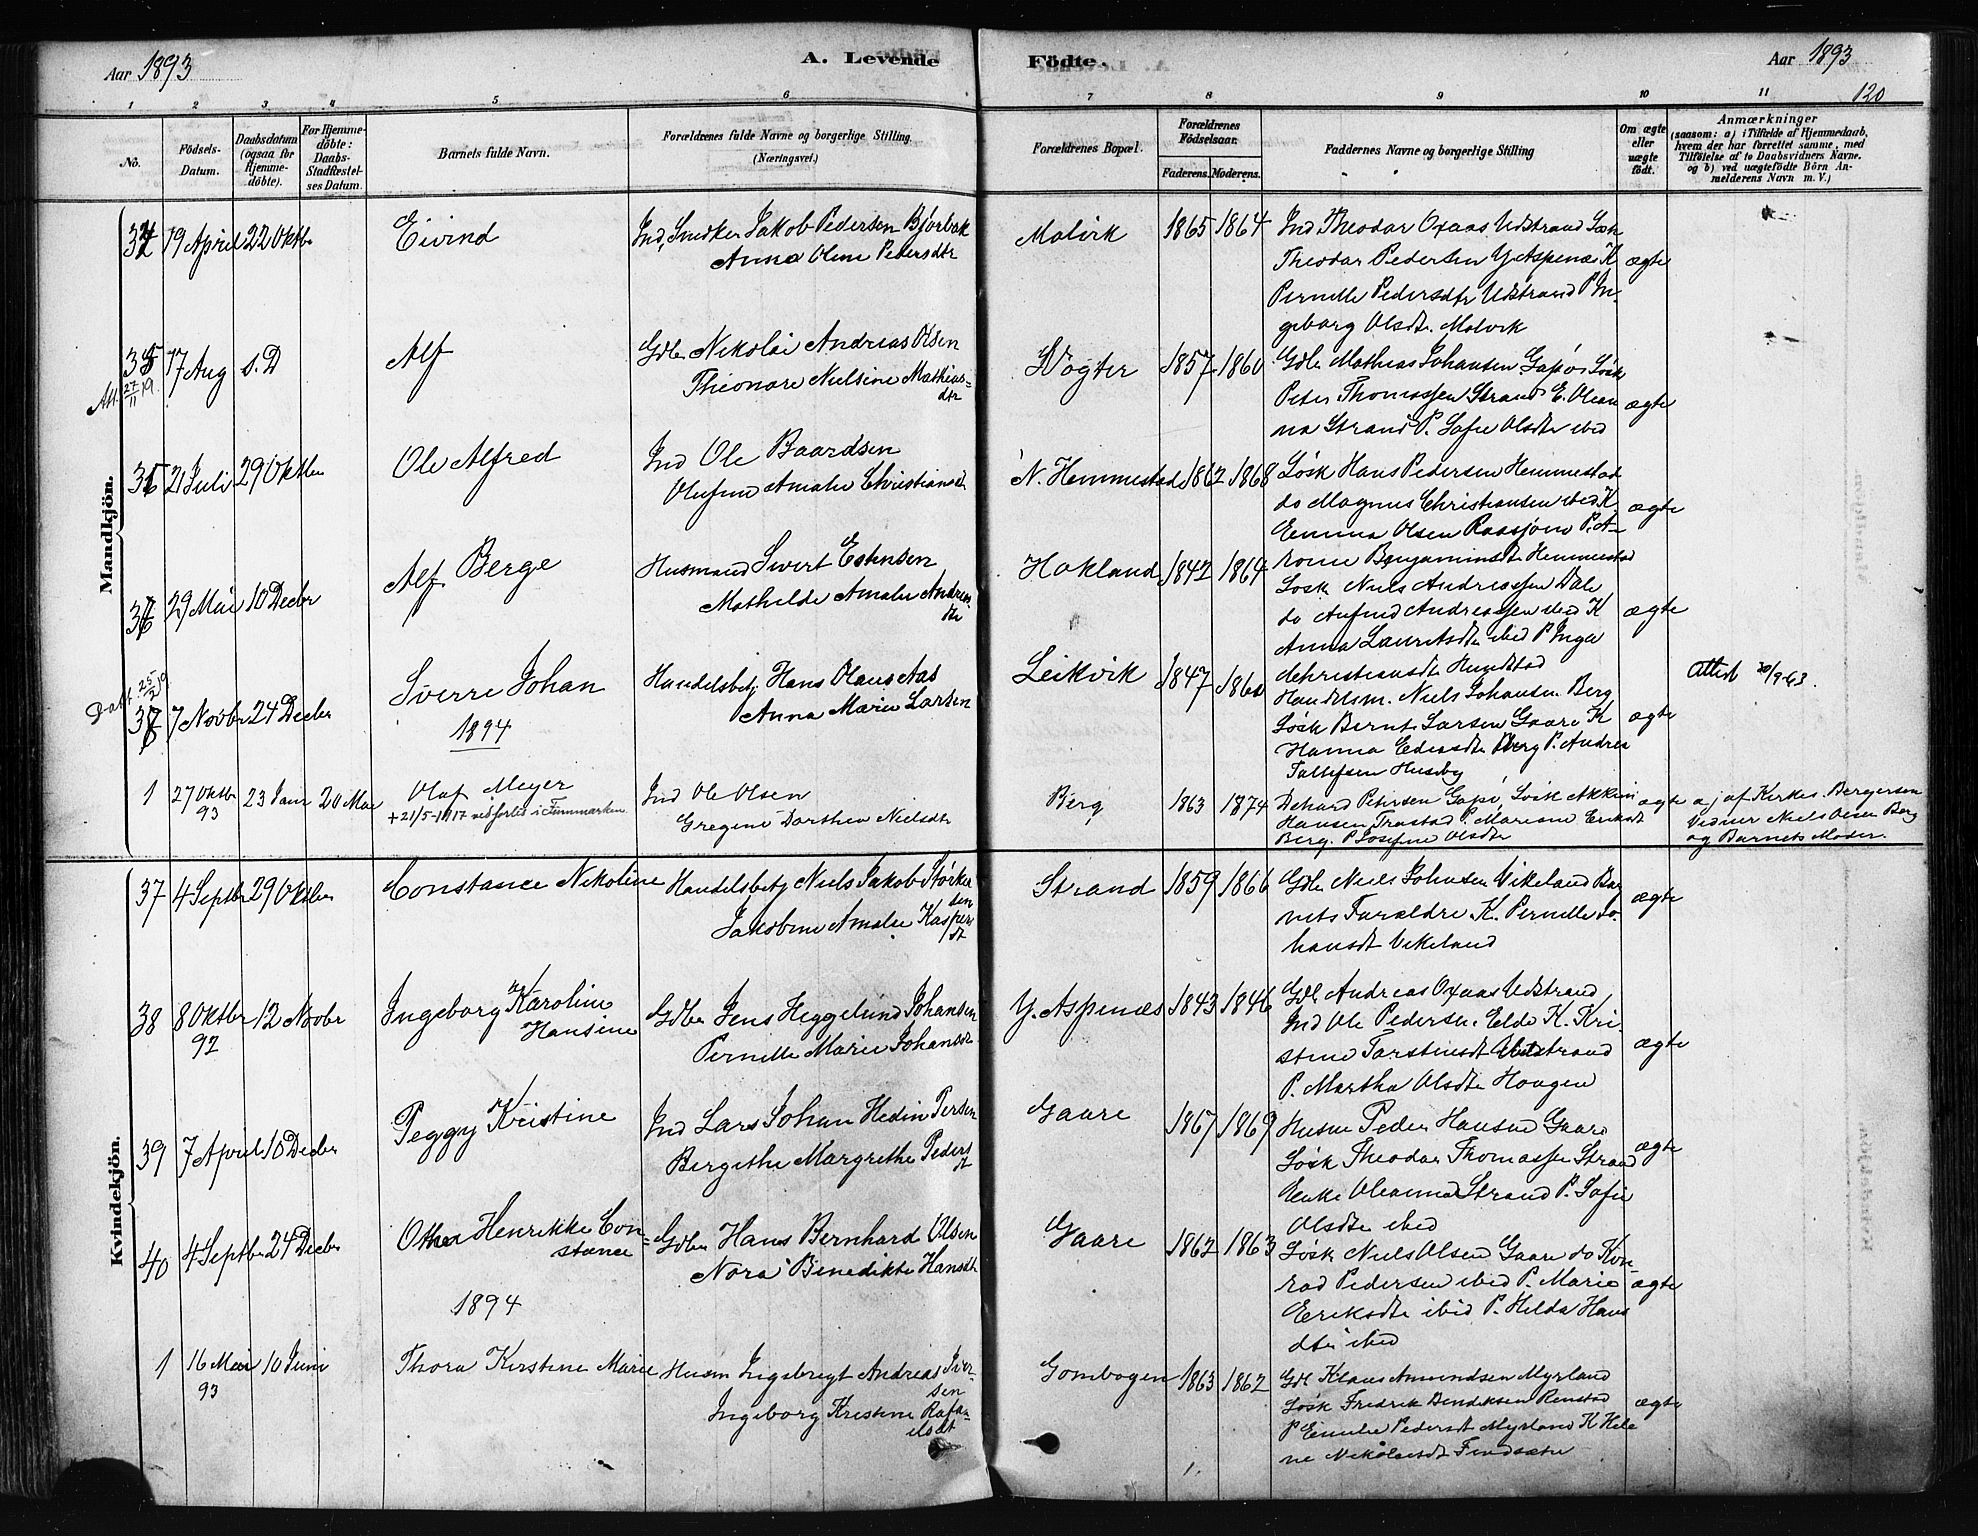 Aar 1893
A. Levende
Födte.
Aar 1893
120
1 2 3 4 5 6 7 8 9 10 11
No.
Födsels-Datum.
Daabsdatum (ogsaa för Hjemme-döbte).
For Hjemme-döbte: Daabs-Stadfæstel-ses Datum.
Barnets fulde Navn.
Forældrenes fulde Navne og borgerlige Stilling.
(Næringsvei.)
Forældrenes Bopæl.
Forældrenes Födselsaar.
Faderens. Moderens.
Faddernes Navne og borgerlige Stilling
Om ægte eller uægte födt.
Anmærkninger
(saasom: a) i Tilfælde af Hjemmedaab,
hvem der har forrettet samme, med
Tilföielse af to Daabsvidners Navne.
og b) ved uægtefödte Börn An-
melderens Navn m. V.)
Mandkjön.
34 19 April 22 Oktbr Eivind
Ind, Snedker Jakob Pedersen Bjørbak
Anna Oline Pedersdtr
Malvik 1865 1864
Ind Theodor Oxaas Udstrand Søsk
Theodor Pedersen Y. Aspenæs K
Pernille Pedersdtr Udstrand P In-
geborg Olsdtr. Malvik
ægte
35 17 Aug s.D Alf
Att. 27/11 19.
Gdbr Nikolai Andreas Olsen
Theonore Nielsine Mathias-
dtr
Vøgter 1857 1860
Gdbr Mathias Johansen Gapø Søsk
Peter Thomassen Strand E. Olean
na Strand P. Sofie Olsdtr ibid
ægte
36 21 Juli 29 Oktbr Ole Alfred
Ind Ole Baardsen
Olufine Amalie Christiansdt
N. Hemmestad 1862 1868
Søsk Hans Pedersen Hemmestad
do Magnus Christiansen ibid K
Emma Olsen Raasjøen P. A-
rone Benjaminsdt Hemmestad
ægte
37 29 Mai 10 Decbr Alf Berge
Husmand Sivert Estensen
Mathilde Amalie Andreas
dtr
Hokland 1842 1864
Søsk Niels Andreassen Dale
do Anfind Andreassen ibid K
Anna Lauritsdtr ibid P Inga
Christiansdtr Hundstad
ægte
38 7 Novbr 24 Decbr Sverre Johan
Handelsbetj Hans Olaus Aas
Anna Marie Larsen
Leikvik 1847 1860
Handelsm. Niels Johansen Berg
Søsk Bernt Larsen Gaare K
Hanna Berg P. Andrea
Tollefsen Husby
ægte
Attest 20/9-63.
1894
1 27 Oktbr 93 23 Jan 20 Mai Olaf Meyer
+ 21/5-1917 ved forlis i Finnmarken
Ind Ole Olsen
Gregine Dorthea Nielsdtr
Berg 1863 1874
Dehard Petersen Gapø, Søsk
Hansen Trastad P. Mariane Eriksdt
Berg. P Josefine Olsdtr
ægte
a) af Kirkes. Bergersen
Vidner Niels Olsen Berg
og Barnets Moder.
Kvindekjön.
37 4 Septbr 29 Oktbr Constance Nikoline
Handelsbetj Niels Jakob Størker
sen
Jakobine Amalie Kaspers
dt
Strand 1859 1866
Gdbr Niels Johnsen Vikeland Bar
nets Forældre K. Pernille Jo-
hansdt Vikeland
ægte
38 8 Oktbr 92 12 Novbr Ingeborg Karoline
Hansine
Gdbr Jens Heggelund Johansen
Pernille Marie Johansdt
Y. Aspenæs 1843 1846
Gdb Andreas Oxaas Udstrand
Ind Ole Pedersen Elde K. Kri-
stine Torstensdt Udstrand
P. Martha Olsdtr Haagen
ægte
39 7 April 10 Decbr Peggy Kristine
Ind Lars Johan Hedin Persen
Bergithe Margrethe Peders
dt
Gaare 1867 1869
Husm Peder Hansen Gaare
Søsk Theodor Thomassen Strand
Enke Oleanna Strand P. Sofie
Olsdtr ibid
ægte
40 4 Septbr 24 Decbr Othea Henrikke Con-
stance
Gdbr Hans Bernhard Olsen
Nora Benedikte Hansdt
Gaare 1862 1863
Søsk Niels Olsen Gaare do Kon-
rad Pedersen ibid P. Marie
Eeriksdtr ibid P. Hilda Hans
dtr ibid
ægte
1894
1 16 Mai 93 10 Juni Thora Kirstine Marie
Husm Ingebregt Andreas Iver-
sen
Ingeborg Kristine Rafa-
elsdt
Gombogen 1863 1862
Gdb Klaus Amundsen Myrland
Søsk Fredrik Bendiksen Renstad
P Emilie Pedersdt Myrland K Hele
ne Nikolaisdt Findsæter
ægte